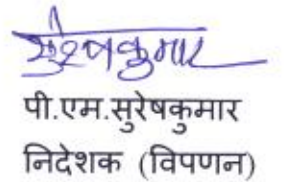 सुरेषकुमार
पी.एम.सुरेषकुमार
निदेशक (विपणन)